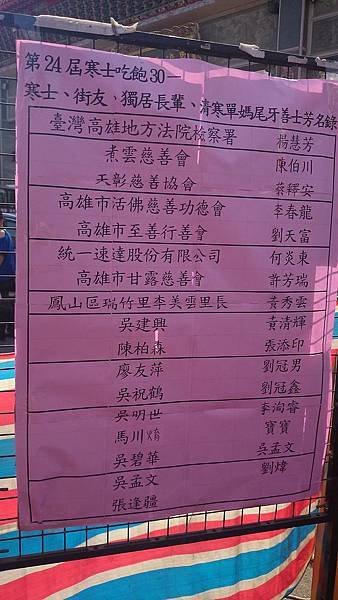 第24屆寒士吃飽30—
寒士、街友、獨居長輩、清寒單媽尾牙善士芳名錄
臺灣高雄地方法院檢察署 楊慧芳
煮雲慈善會 陳伯川
天彰慈善協會 蔡繹安
高雄市活佛慈善功德會 李春龍
高雄市至善行善會 劉天富
統一速達股份有限公司 何炎東
高雄市甘露慈善會 許芳瑞
鳳山區瑞竹里李美雲里長 黃秀雲
吳建興 黃清輝
陳柏森 張添印
廖友萍 劉冠男
吳祝鶴 劉冠鑫
吳明世 李洵睿
馬川焴 寶寶
吳碧華 吳孟文
吳孟文 劉煒
張逢疆